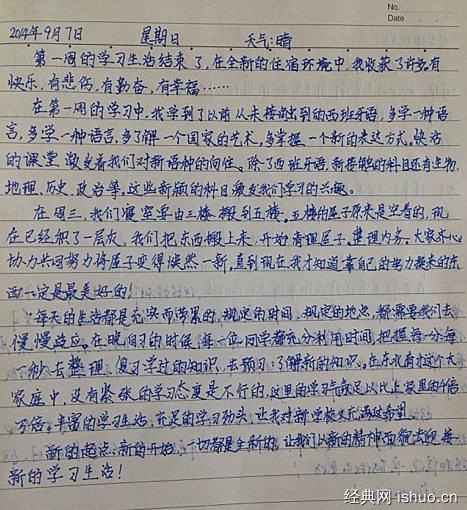 No.
Date
2014年9月7日 星期日 天气:晴
第一周的学习生活结束了,在全新的住宿环境中,我收获了许多有
快乐,有悲伤,有勤奋,有幸福……
在第一周的学习中,我学到了以前从未接触到的西班牙语,多学一种语
言,多学一种语言,多了解一个国家的艺术,多掌握一个新的表达方式,快活
的课堂激发着我们对新语种的向往。除了西班牙语,新接触的科目还有生物,
地理,历史,政治等,这些新颖的科目激发我们学习的兴趣。
在周三,我们寝室要由三楼搬到五楼,五楼的屋子原来是空着的,现
在已经积了一层灰。我们把东西搬上来,开始清理屋子,整理内务,大家齐心
协力共同努力将屋子变得焕然一新,直到现在,我才知道靠自己的努力换来的东
西一定是最美好的!
每天的生活都是充实而节累的,规定的时间,规定的地点,都需要我们去
慢慢适应,在晚自习的时候,每一位同学都充分利用时间,把握每一分每
一秒去整理、复习学过的知识,去预习、了解新的知识。在东北育才这个大
家庭中,没有紧张的学习态度是不行的,这里的学习气氛足以比上家里的千倍
万倍。丰富的学习生活,充足的学习劲头,让我对新学校充满过希望
新的起点,新的开始,一切都是全新的。让我们以新的精神面貌去迎接
新的学习生活!
经典网 ishuo.cn